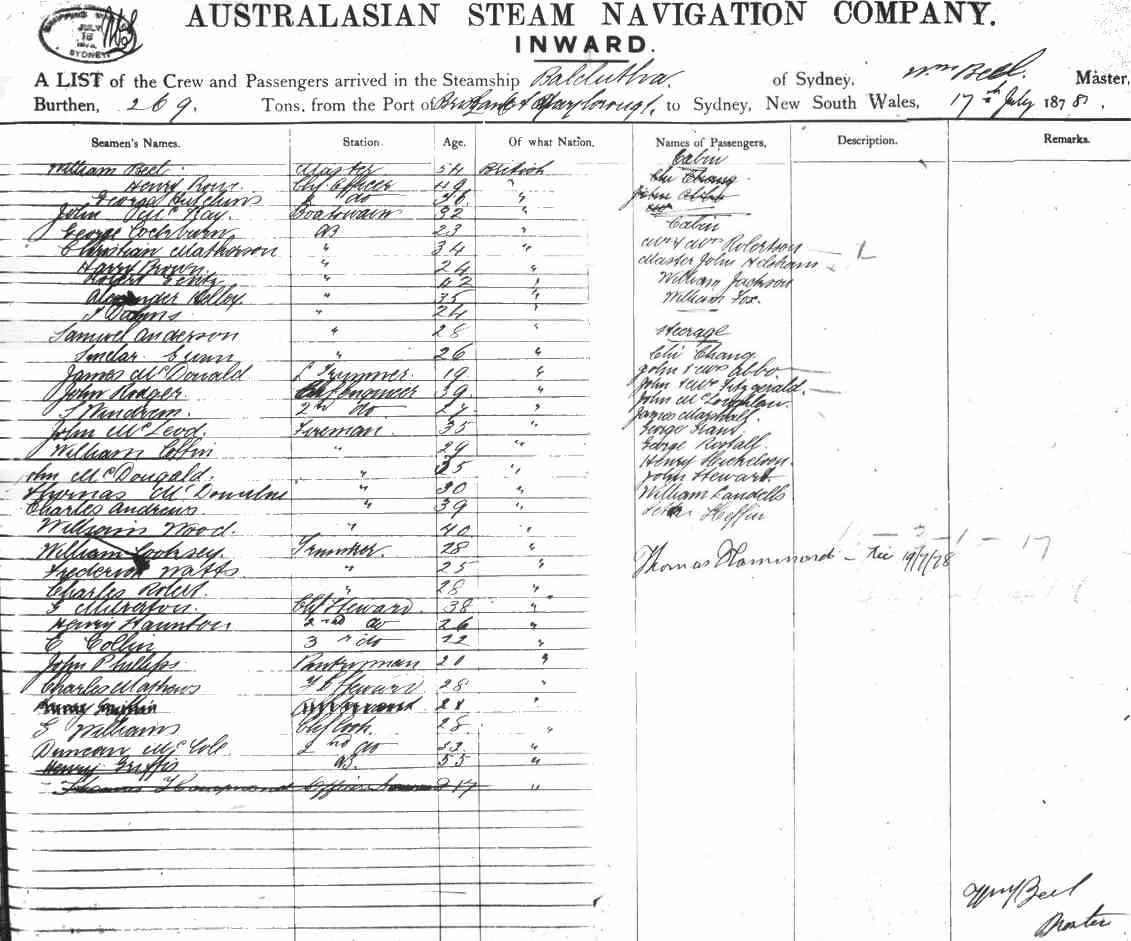 SHIPPING
JULY
18
SYDNEY
AUSTRALASIAN STEAM NAVIGATION COMPANY.
INWARD.
A LIST of the Crew and Passengers arrived in the Steamship Balclutha. of Sydney, Wm Beel. Master,
Burthen, 269. Tons, from the Port of Maryborough, to Sydney, New South Wales, 17th July 1878.
Seamen's Names. Station. Age. Of what Nation. Names of Passengers. Description. Remarks.
William Beel Master 54 British
Henry Rowe Chf Officer 49 "
George Hutchins 2 do 36 "
John McKay. Boatswain 32 "
George Cockburn AB 23 "
Christian Matherson " 34 "
Harry Brown. " 24 "
Robert " 42 "
Alexander Kelley. " 35 "
" 24 "
Samuel Anderson " 28 "
Sinclar Gunn " 26 "
James McDonald Trimmer 19 "
John Rodger. Chf Engineer 39 "
Andrews. 2nd do 27 "
John McLeod. Fireman 35 "
William Coffin " 29 "
John McDougald. " 35 "
Thomas " 30 "
Charles Andrews " 39 "
William Wood. " 40 "
William Cooksey. Trimmer. 28 "
Frederick Watts " 25 "
Charles Robert. " 28 "
G Milverton. Chf Steward. 38 "
Henry Staunton 2nd do 26 "
C Collin 3rd do 22 "
John Phillips Pantryman 20 "
Charles Mathews Steward 28 "
28 "
G Williams Chf Cook. 28 "
Duncan McCole 2nd do 33 "
Henry Griffis AB. 55 "
Thomas Hammond 17 "
Cabin
Chi Chang
John Abbo
Cabin
Mr & Mrs Robertson
Master John
William Jackson
William Fox.
Steerage
Chi Chang
John & Abbo
John & Fitzgerald
John McLoughlan.
James Marshall
George Grant
George
Henry Mickelson.
John Stewart.
William Landells
Heffin
3 - 1 - 17
Thomas Hammond - 19/7/78
Wm Beel
Master